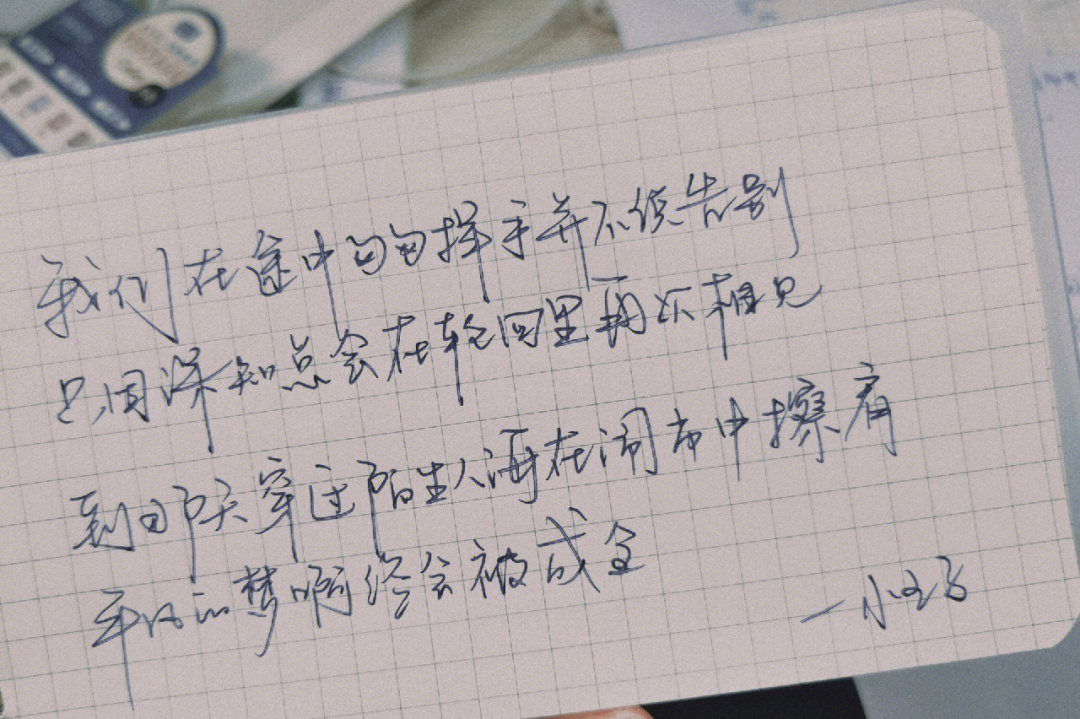 我们在途中匆匆挥手并不续告别
只因深知总会在轮回里再次相见
到了那天穿过陌生人海在闹市中擦肩
平凡的梦啊终会被成全
—小王子